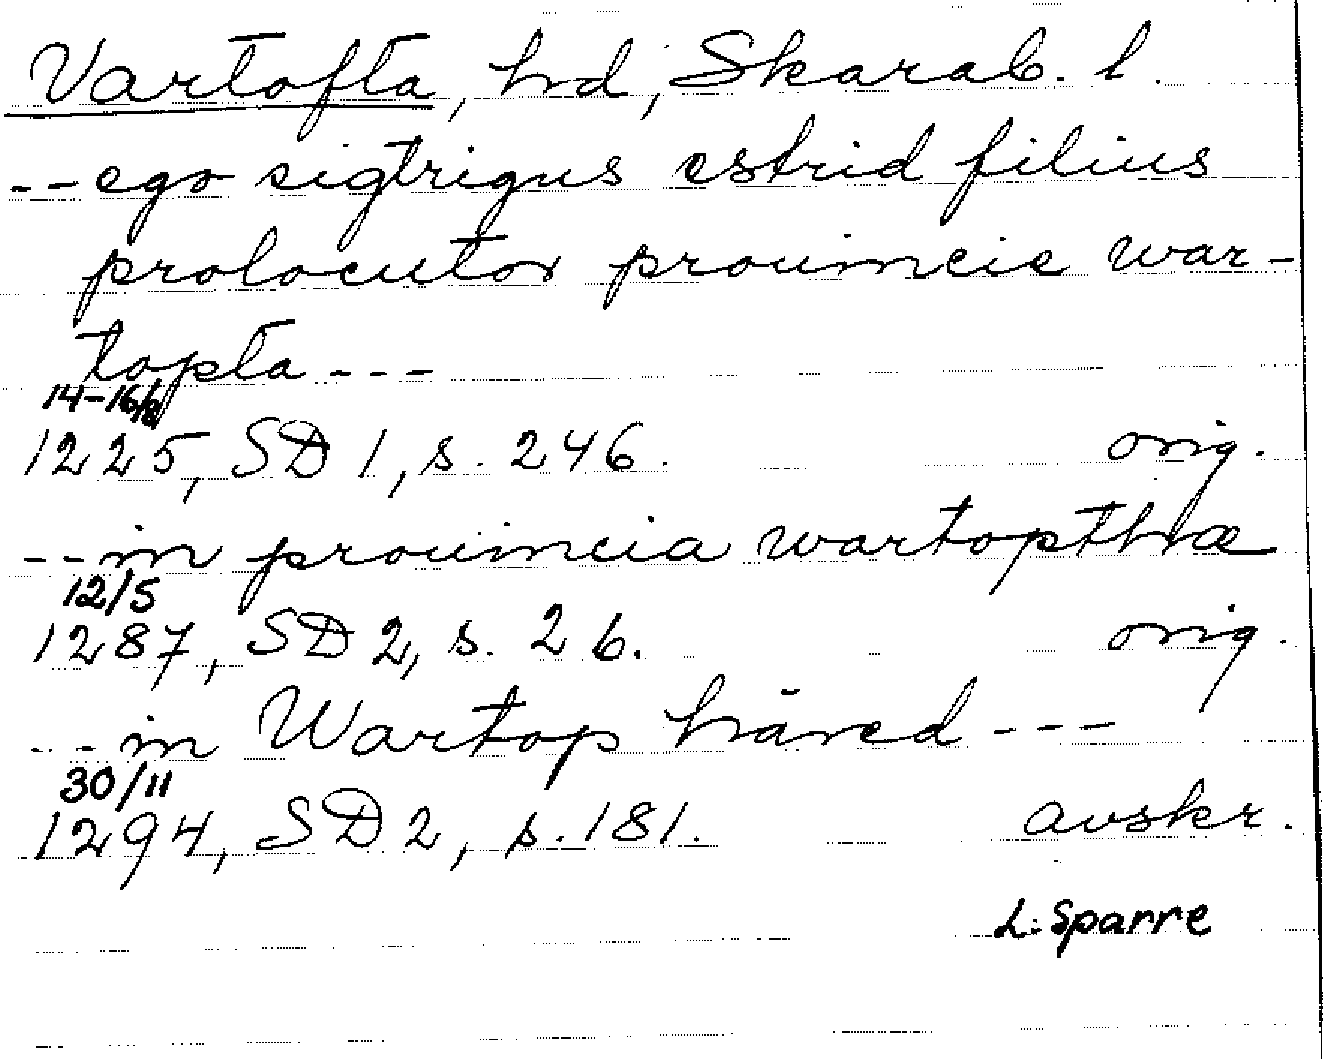 Vartofta, hd, Skarab. l.
-- ego sigtrigus estrid filius
prolocutor prouincie war-
topta ---
14-16/8
1225, SD 1, s. 246. orig.
-- in prouincia wartopthæ
12/5
1287, SD 2, s. 26. orig.
-- in Wartop häred ---
30/11
1294, SD 2, s. 181. avskr.
L. Sparre